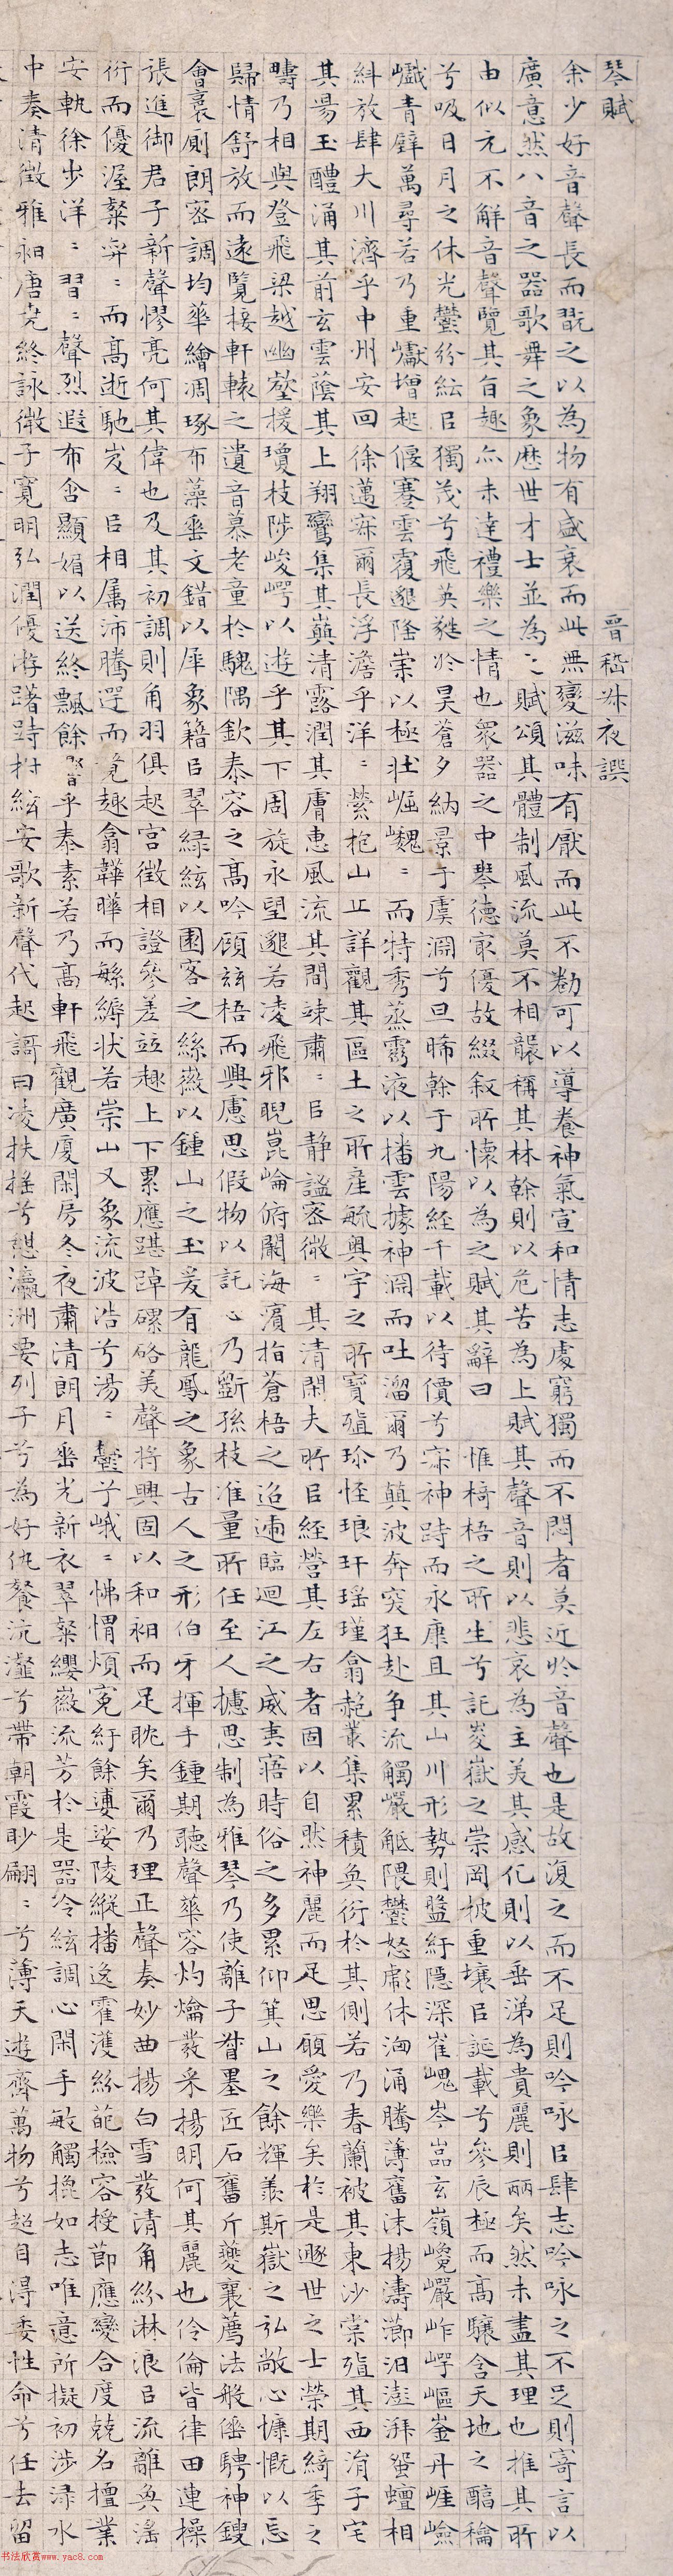 琴賦　晉嵇叔夜譔
余少好音聲長而翫之以為物有盛衰而此無變滋味有厭而此不勌可以導養神氣宣和情志處窮獨而不悶者莫近於音聲也是故復之而不足則吟咏㠯肆志吟咏之不足則寄言以
廣意然八音之器歌舞之象歷世才士並為之賦頌其體制風流莫不相襲稱其材幹則以危苦為上賦其聲音則以悲哀為主美其感化則以垂涕為貴麗則麗矣然未盡其理也推其所
由似元不解音聲覽其旨趣亦未達禮樂之情也眾器之中琴德冣優故綴叙所懷以為之賦其辭曰　惟椅梧之所生兮託峻嶽之崇岡披重壤㠯誕載兮參辰極而高驤含天地之醇龢
兮吸日月之休光鬱紛紜㠯獨茂兮飛英蕤於昊蒼夕納景于虞淵兮旦晞幹于九陽経千載以待價兮寂神跱而永康且其山川形勢則盤紆隱深崔嵬岑嵓玄嶺巉巖岞崿嶇崟丹崖嶮
巇青壁萬尋若乃重巘增起偃蹇雲覆邈隆崇以極壯崛巍巍而特秀蒸靈液以播雲據神淵而吐溜爾乃顛波奔突狂赴爭流觸巖觝隈鬱怒彪休洶涌騰薄奮沫揚濤瀄汩澎湃蜿蟺相
糾放肆大川濟乎中州安回徐邁寂爾長浮澹乎洋洋縈抱山丘詳觀其區土之所產毓奧宇之所寶殖珍怪琅玕瑤瑾翕赩叢集累積奐衍於其側若乃春蘭被其東沙棠殖其西涓子宅
其陽玉醴涌其前玄雲蔭其上翔鸞集其巔清露潤其膚惠風流其間竦肅肅㠯静謐密微微其清閑夫所㠯経營其左右者固以自然神麗而足思願愛樂矣於是遯世之士榮期綺季之
疇乃相與登飛梁越幽壑援瓊枝陟峻崿以遊乎其下周旋永望邈若凌飛邪睨崑崙俯闞海濱指蒼梧之迢遞臨迴江之威夷寤時俗之多累仰箕山之餘輝羨斯嶽之弘敞心慷慨以忘
歸情舒放而遠覽接軒轅之遺音慕老童於騩隅欽泰容之高吟顧茲梧而興慮思假物以託心乃斲孫枝准量所任至人攄思制為雅琴乃使離子督墨匠石奮斤夔襄薦法般倕騁神鎪
會裛廁朗密調均華繪凋琢布藻垂文錯以犀象籍㠯翠綠絃以園客之絲徽以鍾山之玉爰有龍鳳之象古人之形伯牙揮手鍾期聽聲華容灼爚發采揚明何其麗也伶倫皆律田連操
張進御君子新聲憀亮何其偉也及其初調則角羽俱起宮徵相證參差竝趣上下累應踸踔磥硌美聲將興固以和昶而足耽矣爾乃理正聲奏妙曲揚白雪發清角紛淋浪㠯流離奐淫
衍而優渥粲奕奕而高逝馳岌岌㠯相属沛騰遌而競趣翕韡曄而繁縟状若崇山又象流波浩兮湯湯鬱兮峨峨怫㥜煩冤紆餘婆娑陵縱播逸霍濩紛葩檢容授節應變合度兢名擅業
安軌徐步洋洋習習聲烈遐布含顯媚以送終飄餘響乎泰素若乃高軒飛觀廣廈閑房冬夜肅清朗月垂光新衣翠粲纓徽流芳於是器冷絃調心閑手敏觸㧖如志唯意所擬初涉淥水
中奏清徵雅昶唐堯終詠微子寬明弘潤優游躇跱拊絃安歌新聲代起謌曰凌扶搖兮憩瀛洲要列子兮為好仇餐沆瀣兮帶朝霞眇翩翩兮薄天遊齊萬物兮超自淂委性命兮任去留
书法欣赏www.yac8.com